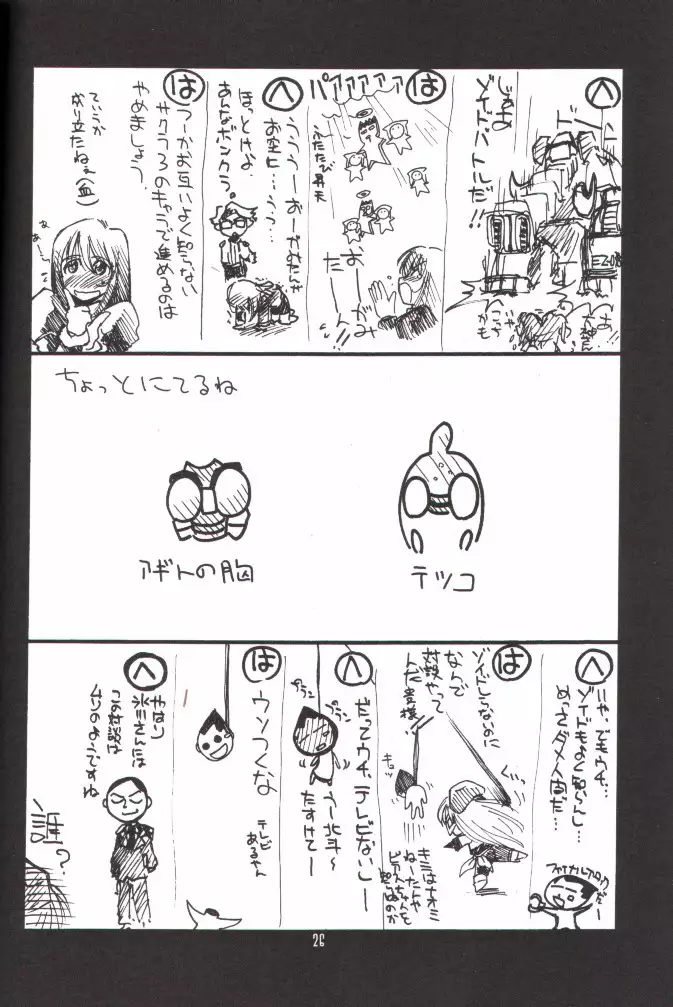 へ
じゃあ
ゾイドバトルだ!!
ドン
EZ-0
は
パアアアアァァ
ふたたび昇天
おーがみ
たーん
へ
ううう…おーがみたんが
お空に…うう…
ほっとけよ
あんなボンクラ。
は
つーかお互いよく知らない
サクラ3のキャラで進めるのは
やめましょう。
ていうか
ちょっとにてるね
テツコ
アギトの胸
へ
いや、でもウチ…
ゾイドもよく知らんし…
めっさダメ人間だ…
は
ゾイドしらないのに
なんで
対談やって
んだ貴様
キュッ
キミはナオミ
ねーたんや
ピアスちゃんを
知らぬのか
へ
プラン
プラン
だってウチ、テレビないしー
うー北斗〜
たすけてー
は
ウソつくな
テレビ
あるやん
へ
やはり
氷川さんには
この対談は
ムリのようですね
誰?
26